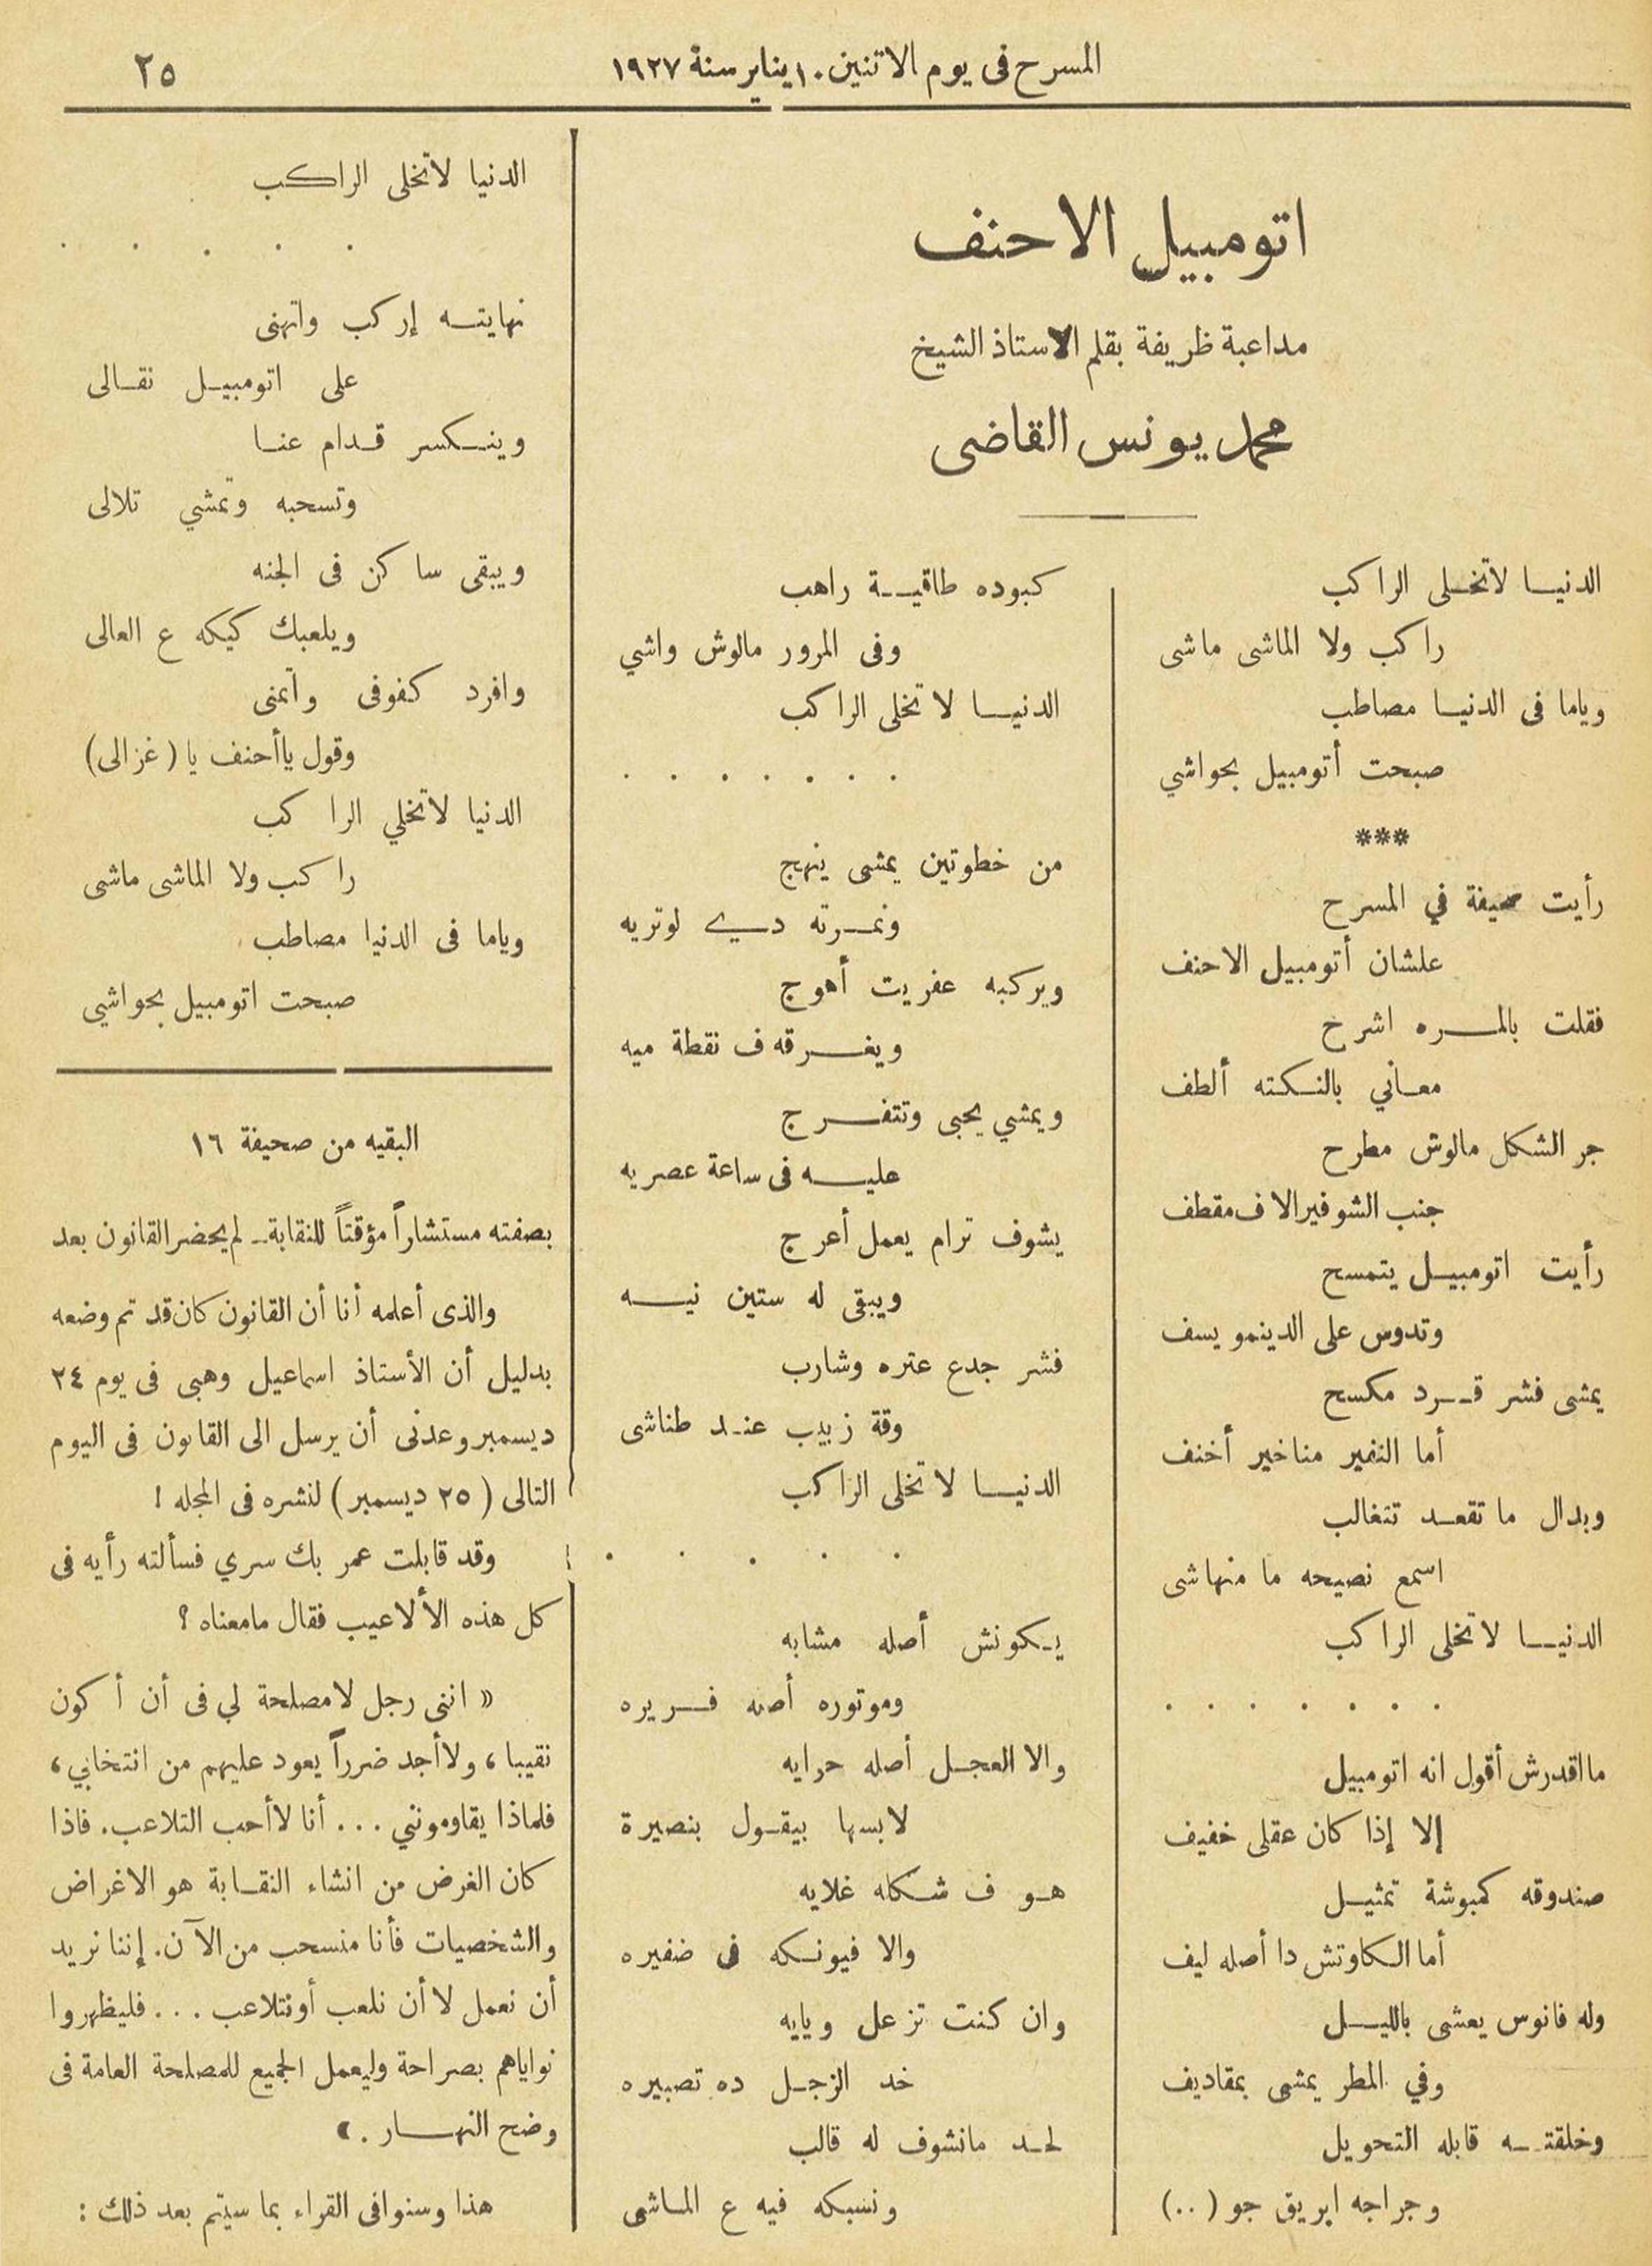 المسرح فى يوم الاثنين ١٠ يناير سنة ١٩٢٧
٢٥
اتومبيل الاحنف
مداعبة ظريفة بقلم الاستاذ الشيخ
محمد يونس القاضى
الدنيا لاتخلى الراكب
راكب ولا الماشى ماشى
وياما فى الدنيا مصاطب
صبحت أتومبيل بحواشي
***
رأيت صحيفة في المسرح
علشان أتومبيل الاحنف
فقلت بالمره اشرح
معانى بالنكته ألطف
جر الشكل مالوش مطرح
جنب الشوفير الاف مقطف
رأيت اتومبيل يتمسح
وتدوس على الدينمو يسف
يمشى فشر قرد مكسح
أما النفير مناخير أخنف
وبدال ما تقعد تتغالب
اسمع نصيحه ما منهاشى
الدنيا لاتخلى الراكب
. . . . . . .
مااقدرش أقول انه اتومبيل
إلا إذا كان عقلى خفيف
صندوقه كمبوشة تمثيل
أما الكاوتش دا أصله ليف
وله فانوس يعشى بالليل
وفي المطر يمشى بمقاديف
وخلقته قابله التحويل
وجراجه ابريق جو (..)
كبوده طاقية راهب
وفى المرور مالوش واشي
الدنيا لا تخلى الراكب
. . . . . . .
من خطوتين يمشى ينهج
ونمرته دي لوتريه
ويركبه عفريت أهوج
ويغرقه ف نقطة ميه
ويمشي يحبى وتتفرج
عليه فى ساعة عصريه
يشوف ترام يعمل أعرج
ويبقى له ستين نيه
فشر جدع عتره وشارب
وقة زبيب عند طناشى
الدنيا لا تخلى الراكب
. . . . .
يكونش أصله مشابه
وموتوره أصله فريره
والا العجل أصله حرايه
لابسها بيقول بنصيرة
هو ف شكله غلايه
والا فيونكه فى ضفيره
وان كنت تزعل ويايه
خد الزجل ده تصبيره
لحد مانشوف له قالب
ونسبكه فيه ع الماشى
الدنيا لاتخلى الراكب
. . . . .
نهايته إركب واتهنى
على اتومبيل نقالى
وينكسر قدام عنا
وتسحبه وتمشي تلالى
ويبقى ساكن فى الجنه
ويلعبك كيكه ع العالى
وافرد كفوفى واتمنى
وقول ياأحنف يا (غزالى)
الدنيا لاتخلي الراكب
راكب ولا الماشى ماشى
وياما فى الدنيا مصاطب
صبحت اتومبيل بحواشي
البقيه من صحيفة ١٦
بصفته مستشاراً مؤقتاً للنقابة ـ لم يحضر القانون بعد
والذى أعلمه أنا أن القانون كان قد تم وضعه
بدليل أن الأستاذ اسماعيل وهبى فى يوم ٢٤
ديسمبر وعدنى أن يرسل الى القانون فى اليوم
التالى (٢٥ ديسمبر) لنشره فى المجله !
وقد قابلت عمر بك سري فسألته رأيه فى
كل هذه الألاعيب فقال مامعناه ؟
« اننى رجل لامصلحة لي فى أن أكون
نقيبا ، ولاأجد ضرراً يعود عليهم من انتخابي ،
فلماذا يقاومونني ... أنا لاأحب التلاعب. فاذا
كان الغرض من انشاء النقابة هو الاغراض
والشخصيات فأنا منسحب من الآن. إننا نريد
أن نعمل لا أن نلعب أونتلاعب ... فليظهروا
نواياهم بصراحة وليعمل الجميع للمصلحة العامة فى
وضح النهار . »
هذا وسنوافى القراء بما سيتم بعد ذلك :